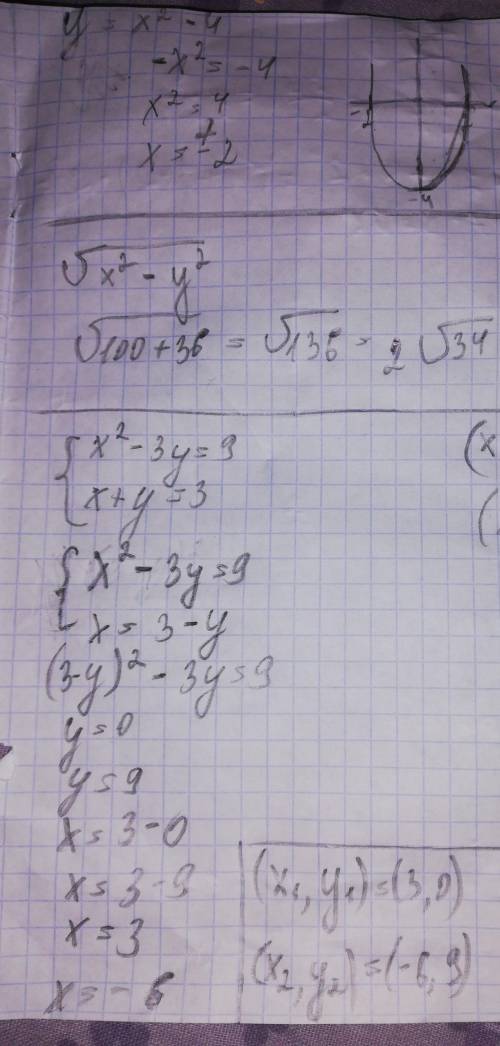 y = x² - 4
-x² = -4
x² = 4
x = ± 2
-2
-4
√x² - y²
√100 + 36 = √136 = 2 √34
{ x² - 3y = 9
x + y = 3
(x
(
{ x² - 3y = 9
x = 3 - y
(3-y)² - 3y = 9
y = 0
y = 9
x = 3 - 0
x = 3 - 9
x = 3
x = - 6
(x₁, y₁) = (3, 0)
(x₂, y₂) = (-6, 9)